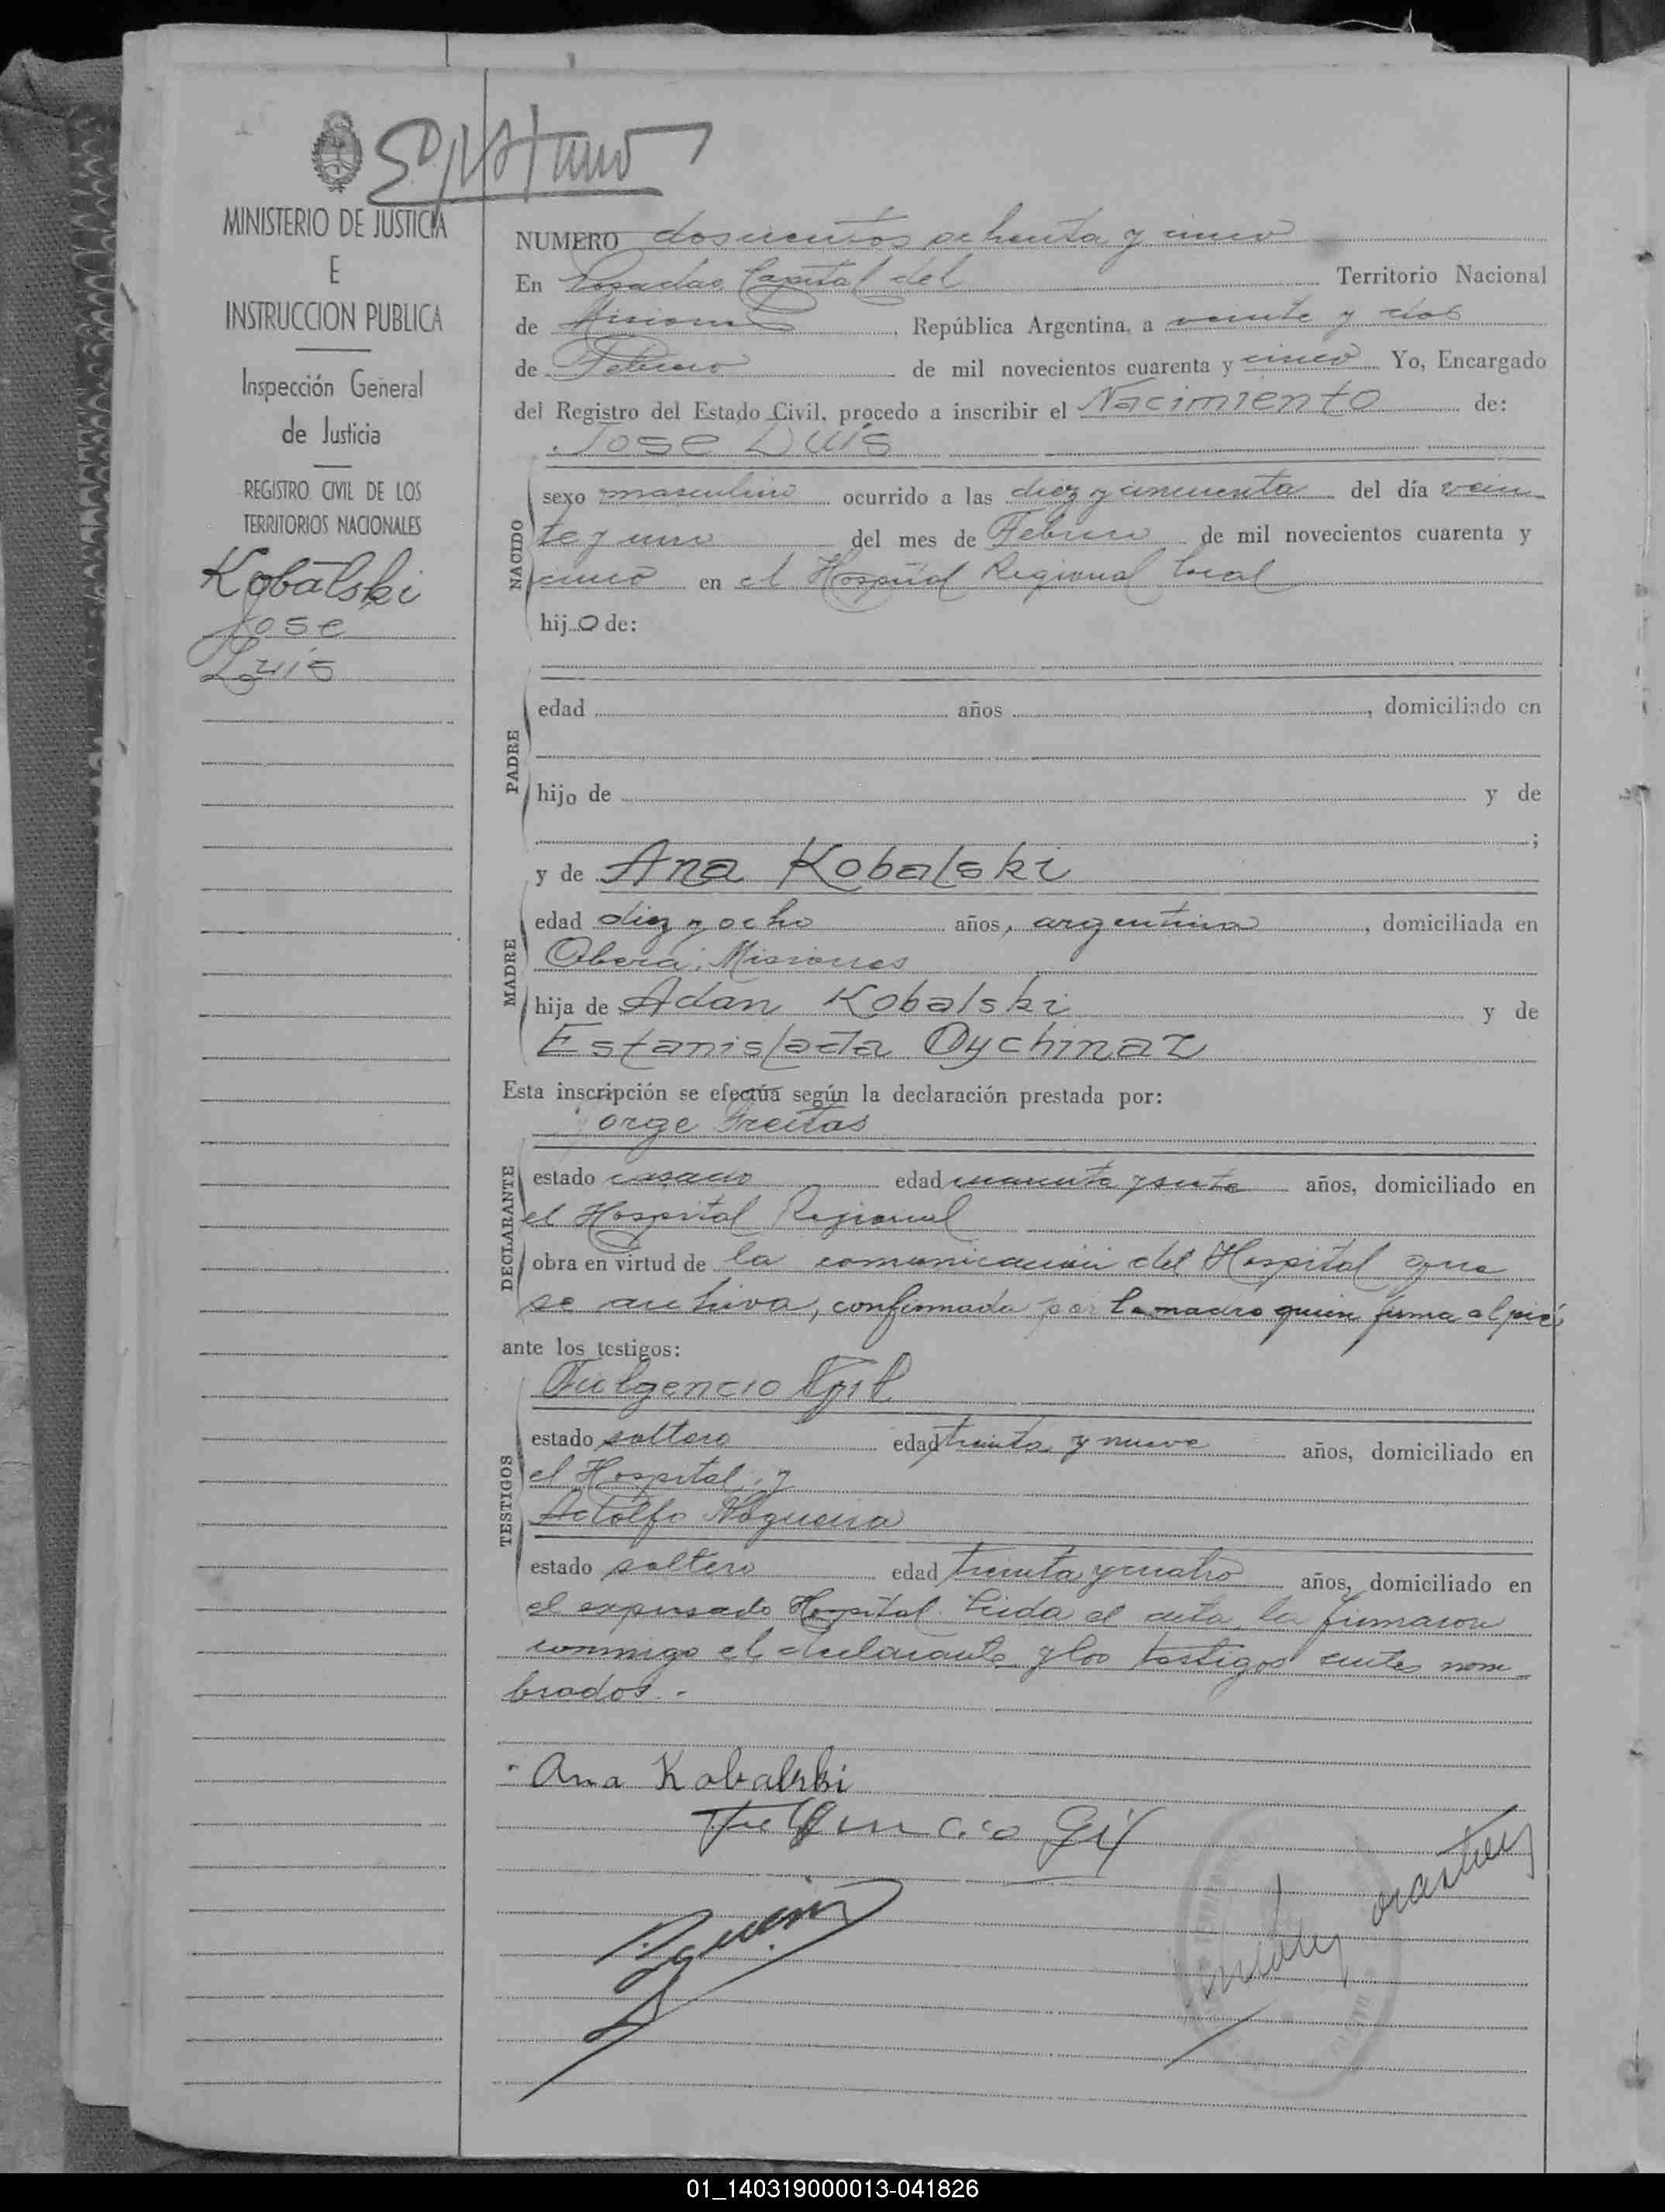 MINISTERIO DE JUSTICIA
E
INSTRUCCION PUBLICA
Inspección General
de Justicia
REGISTRO CIVIL DE LOS
TERRITORIOS NACIONALES
Kobalski
Jose
Luis
NUMERO doscientos ochenta y cinco
En Posadas Capital del Territorio Nacional
de Misiones, República Argentina, a veinte y dos
de Febrero de mil novecientos cuarenta y cinco Yo, Encargado
del Registro del Estado Civil, procedo a inscribir el Nacimiento de:
Jose Luis
NACIDO
sexo masculino ocurrido a las diez y cincuenta del día vein
te y uno del mes de Febrero de mil novecientos cuarenta y
cinco en el Hospital Regional local
hijo de:
PADRE
edad años , domiciliado en
hijo de y de
;
y de Ana Kobalski
MADRE
edad diez y ocho años, argentina, domiciliada en
Oberá, Misiones
hija de Adan Kobalski y de
Estanislada Dychinaz
Esta inscripción se efectúa según la declaración prestada por:
Jorge Freitas
DECLARANTE
estado casado edad cuarenta y siete años, domiciliado en
el Hospital Regional
obra en virtud de la comunicación del Hospital que
se archiva, confirmada por la madre quien firma al pié
ante los testigos:
Fulgencio Gil
TESTIGOS
estado soltero edad treinta y nueve años, domiciliado en
el Hospital, y
Adolfo Nogueira
estado soltero edad treinta y cuatro años, domiciliado en
el expresado Hospital. Leida el acta, la firmaron
conmigo el declarante y los testigos antes nom
brados.-
Ana Kobalski
Fulgencio Gil
01_140319000013-041826